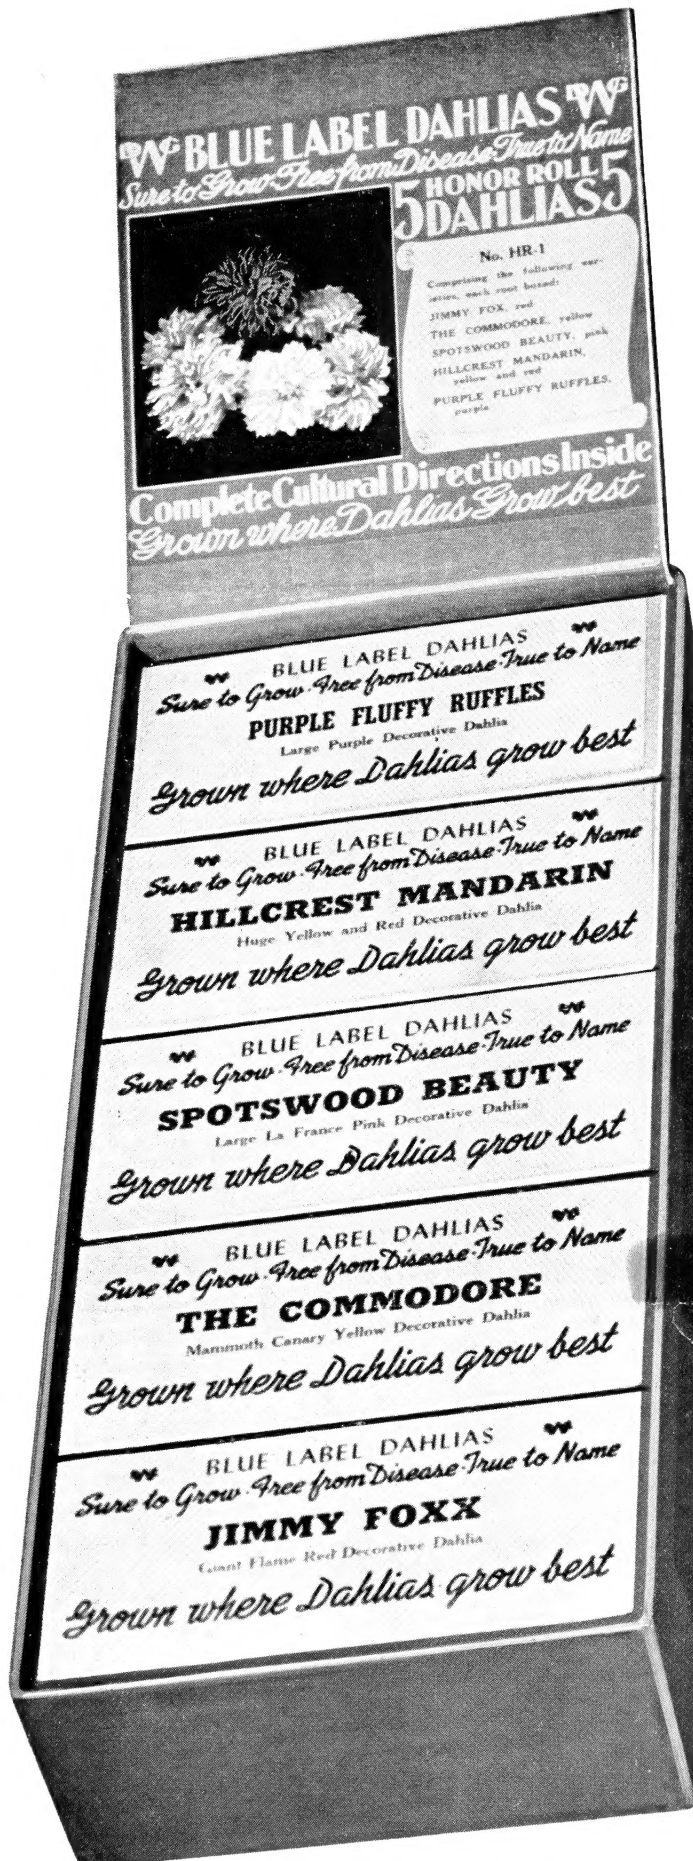 DWG BLUE LABEL DAHLIAS DWG
Sure to Grow·Free from Disease·True to Name
5 HONOR ROLL 5
DAHLIAS
No. HR-1
Comprising the following var-
ieties, each root boxed:
JIMMY FOX, red
THE COMMODORE, yellow
SPOTSWOOD BEAUTY, pink
HILLCREST MANDARIN,
yellow and red
PURPLE FLUFFY RUFFLES,
purple
Complete Cultural Directions Inside
Grown where Dahlias Grow best
BLUE LABEL DAHLIAS
Sure to Grow·Free from Disease·True to Name
PURPLE FLUFFY RUFFLES
Large Purple Decorative Dahlia
Grown where Dahlias grow best
BLUE LABEL DAHLIAS
Sure to Grow·Free from Disease·True to Name
HILLCREST MANDARIN
Huge Yellow and Red Decorative Dahlia
Grown where Dahlias grow best
BLUE LABEL DAHLIAS
Sure to Grow·Free from Disease·True to Name
SPOTSWOOD BEAUTY
Large La France Pink Decorative Dahlia
Grown where Dahlias grow best
BLUE LABEL DAHLIAS
Sure to Grow·Free from Disease·True to Name
THE COMMODORE
Mammoth Canary Yellow Decorative Dahlia
Grown where Dahlias grow best
BLUE LABEL DAHLIAS
Sure to Grow·Free from Disease·True to Name
JIMMY FOXX
Giant Flame Red Decorative Dahlia
Grown where Dahlias grow best